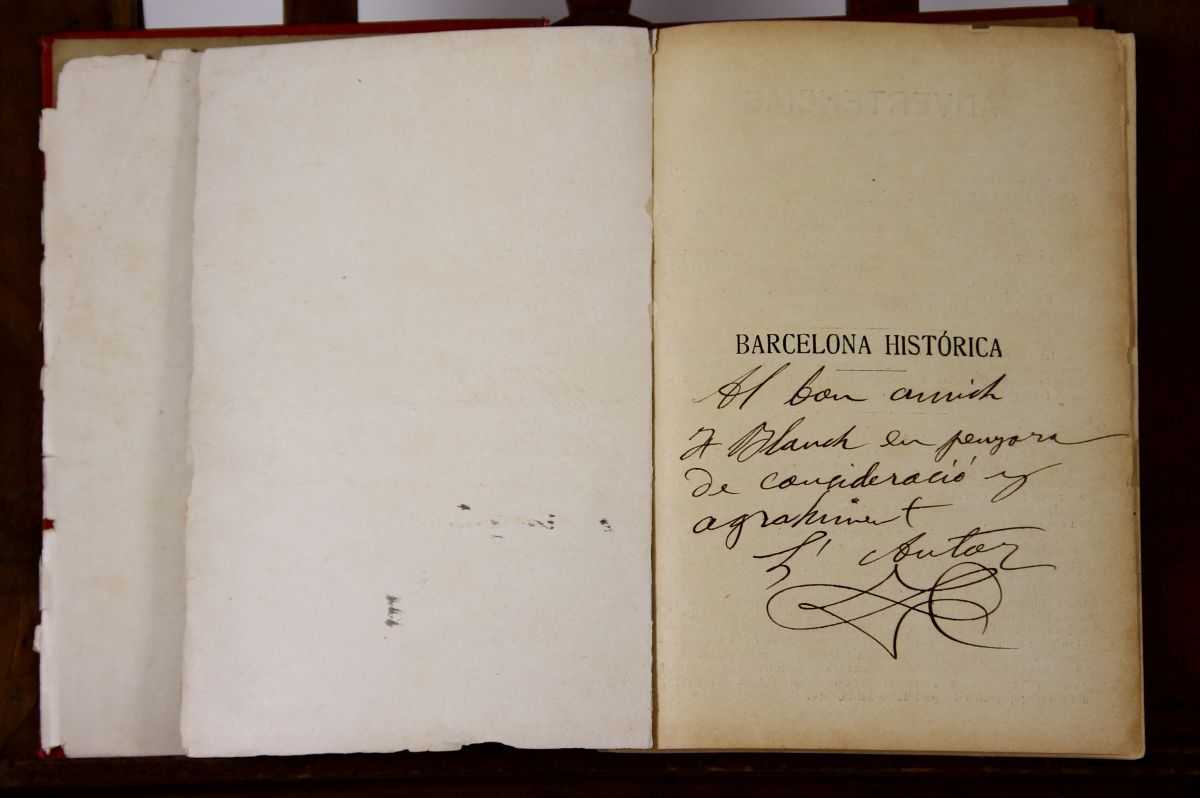 BARCELONA HISTÓRICA
Al bon amich
F Blanch en penyora
de concideració y
agrahiment
L' Autor